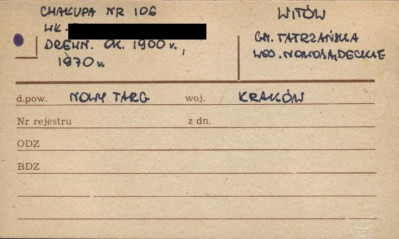 CHAŁUPA NR 106
WŁ.
DREWN. OK. 1900 r.,
1970 r.
WITÓW
GM. TATRZAŃSKA
WOJ. NOWOSĄDECKIE
d.pow. NOWY TARG woj. KRAKÓW
Nr rejestru z dn.
ODZ
BDZ